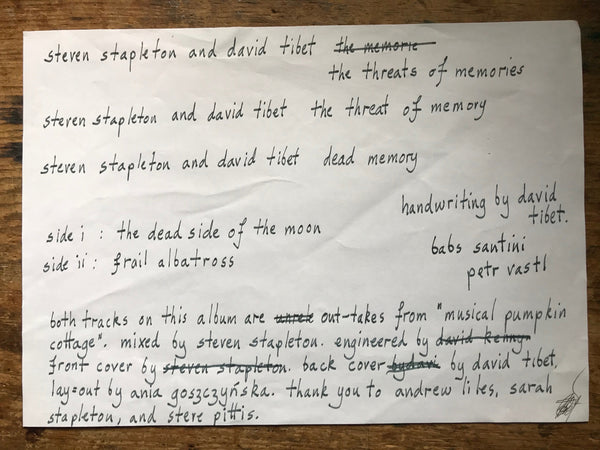 steven stapleton and david tibet the memorie
the threats of memories
steven stapleton and david tibet the threat of memory
steven stapleton and david tibet dead memory
handwriting by david
tibet.
side i : the dead side of the moon
side ii : frail albatross
babs santini
petr vastl
both tracks on this album are out-takes from "musical pumpkin
cottage". mixed by steven stapleton. engineered by david kenny.
front cover by steven stapleton. back cover by davi by david tibet.
lay=out by ania goszczyńska. thank you to andrew liles, sarah
stapleton, and steve pittis.